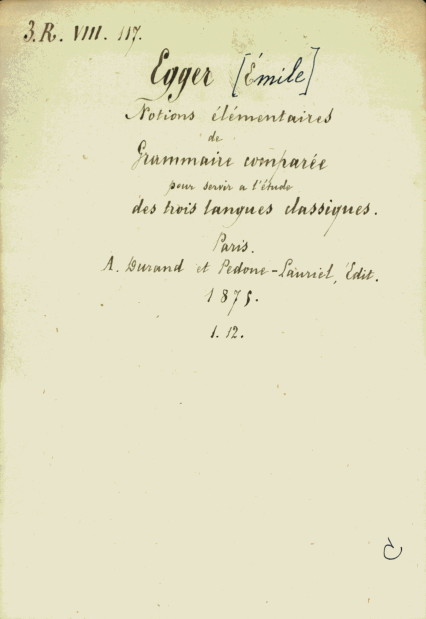 3. R. VIII. 117.
Egger [Émile]
Notions élémentaires
de
Grammaire comparée
pour servir a l'étude
des trois langues classiques.
Paris.
A. Durand et Pedone-Lauriel, Édit.
1875.
1. 12.